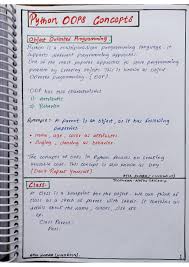 Python OOPs Concepts
Object Oriented Programming
Python is a multiparadigm programming language. It
supports different programming approach.
One of the most popular approaches to solve programming
problem by creating objects. This is known as Object
Oriented programming (OOP)
OOP has two characteristics
1) Attributes
2) Behavior
Example: A parent is an object, as it has following
properties
• name, age, color as attributes
• singing, dancing as behavior
The concepts of OOPs in Python focuses on creating
reusable code. This concept is also known as Dry
(Don't Repeat Yourself)
Class
A class is a blueprint for the object. We can think of
class as a sketch of parent with labels. It contains all
details about the name, colours, size etc.
Ex:
class Parrot:
Pass